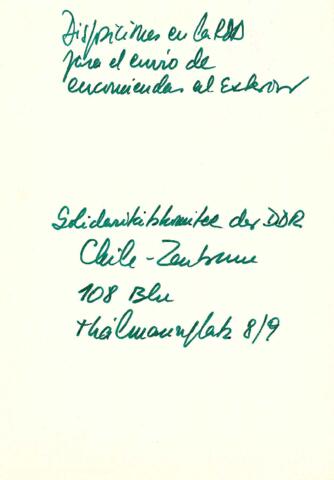 Disposiciones en la RDA
para el envío de
encomiendas al Exterior
Solidaritätskomitee der DDR
Chile-Zentrum
108 Bln
Thälmannplatz 8/9